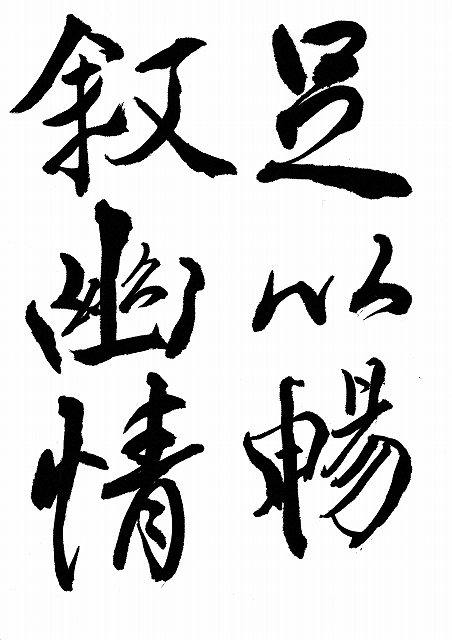 足以暢
叙幽情